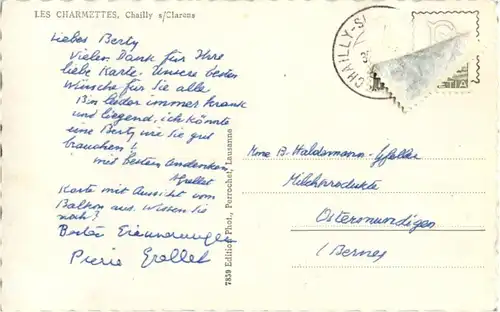 LES CHARMETTES, Chailly s/Clarens
Liebes Berty
Vielen Dank für Ihre
liebe Karte. Unsere besten
Wünsche für Sie alle
Bin leider immer krank
und liegend, ich könnte
eine Berty wie Sie gut
brauchen!
mit besten Andenken
SGrellet
Karte mit Aussicht vom
Balkon aus. Wissen Sie
noch?
Beste Erinnerungen
Pierre Grellet
7859 Edition Phot. Perrochet, Lausanne
CHAILLY-S
TIA
Mme B. Haldemann-Gfeller
Milchprodukte
Ostermundigen
(Berne)